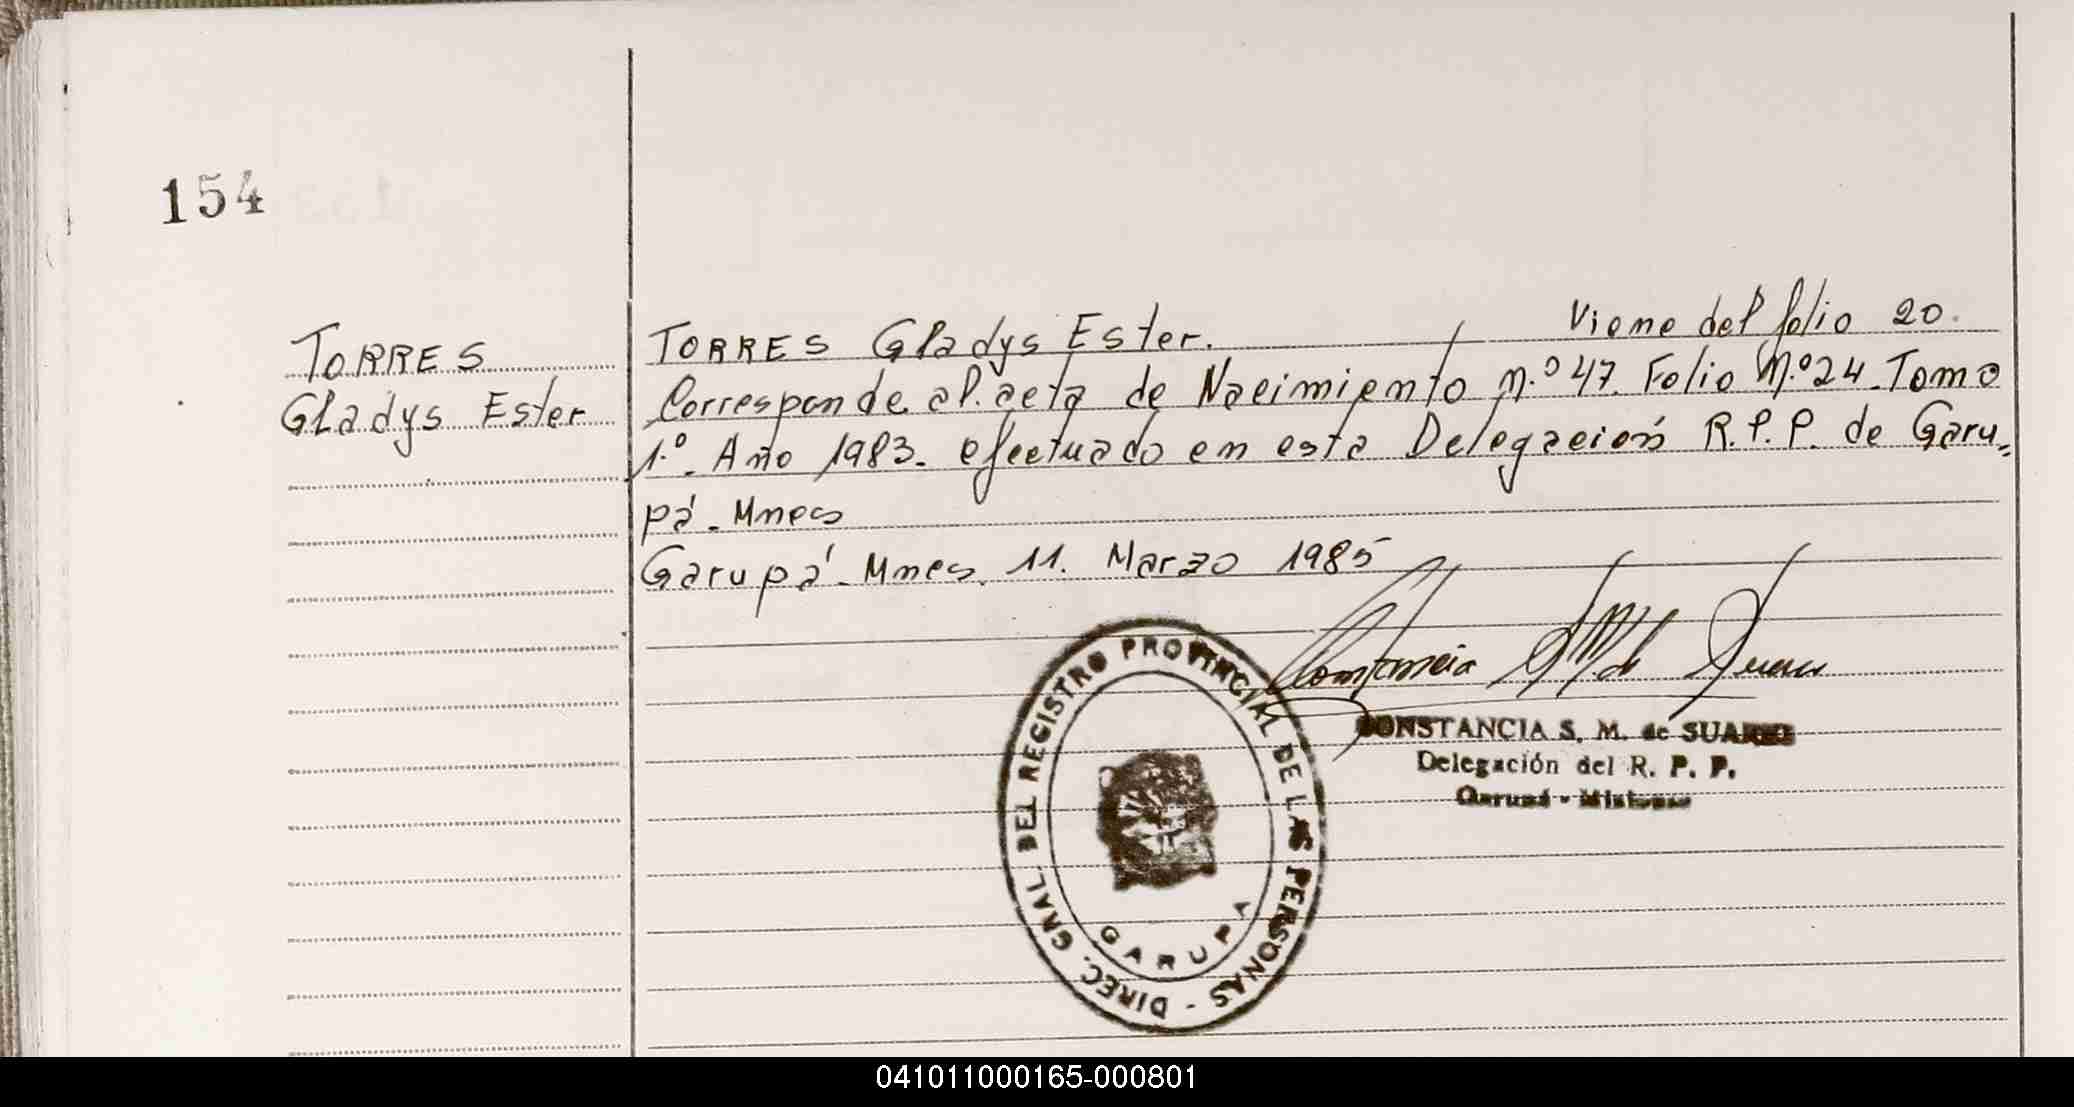 154
TORRES
Gladys Ester
Viene del folio 20.
TORRES Gladys Ester.
Corresponde al acta de Nacimiento N.º 47. Folio N.º 24. Tomo
1.º. Año 1983. efectuado en esta Delegación R.P.P. de Garu-
pá - Mnes
Garupá - Mnes. 11. Marzo 1985
Constancia S M de Suarez
CONSTANCIA S. M. de SUAREZ
Delegación del R. P. P.
Garupá - Misiones
DIREC. GRAL. DEL REGISTRO PROVINCIAL DE LAS PERSONAS -
GARUPA
041011000165-000801